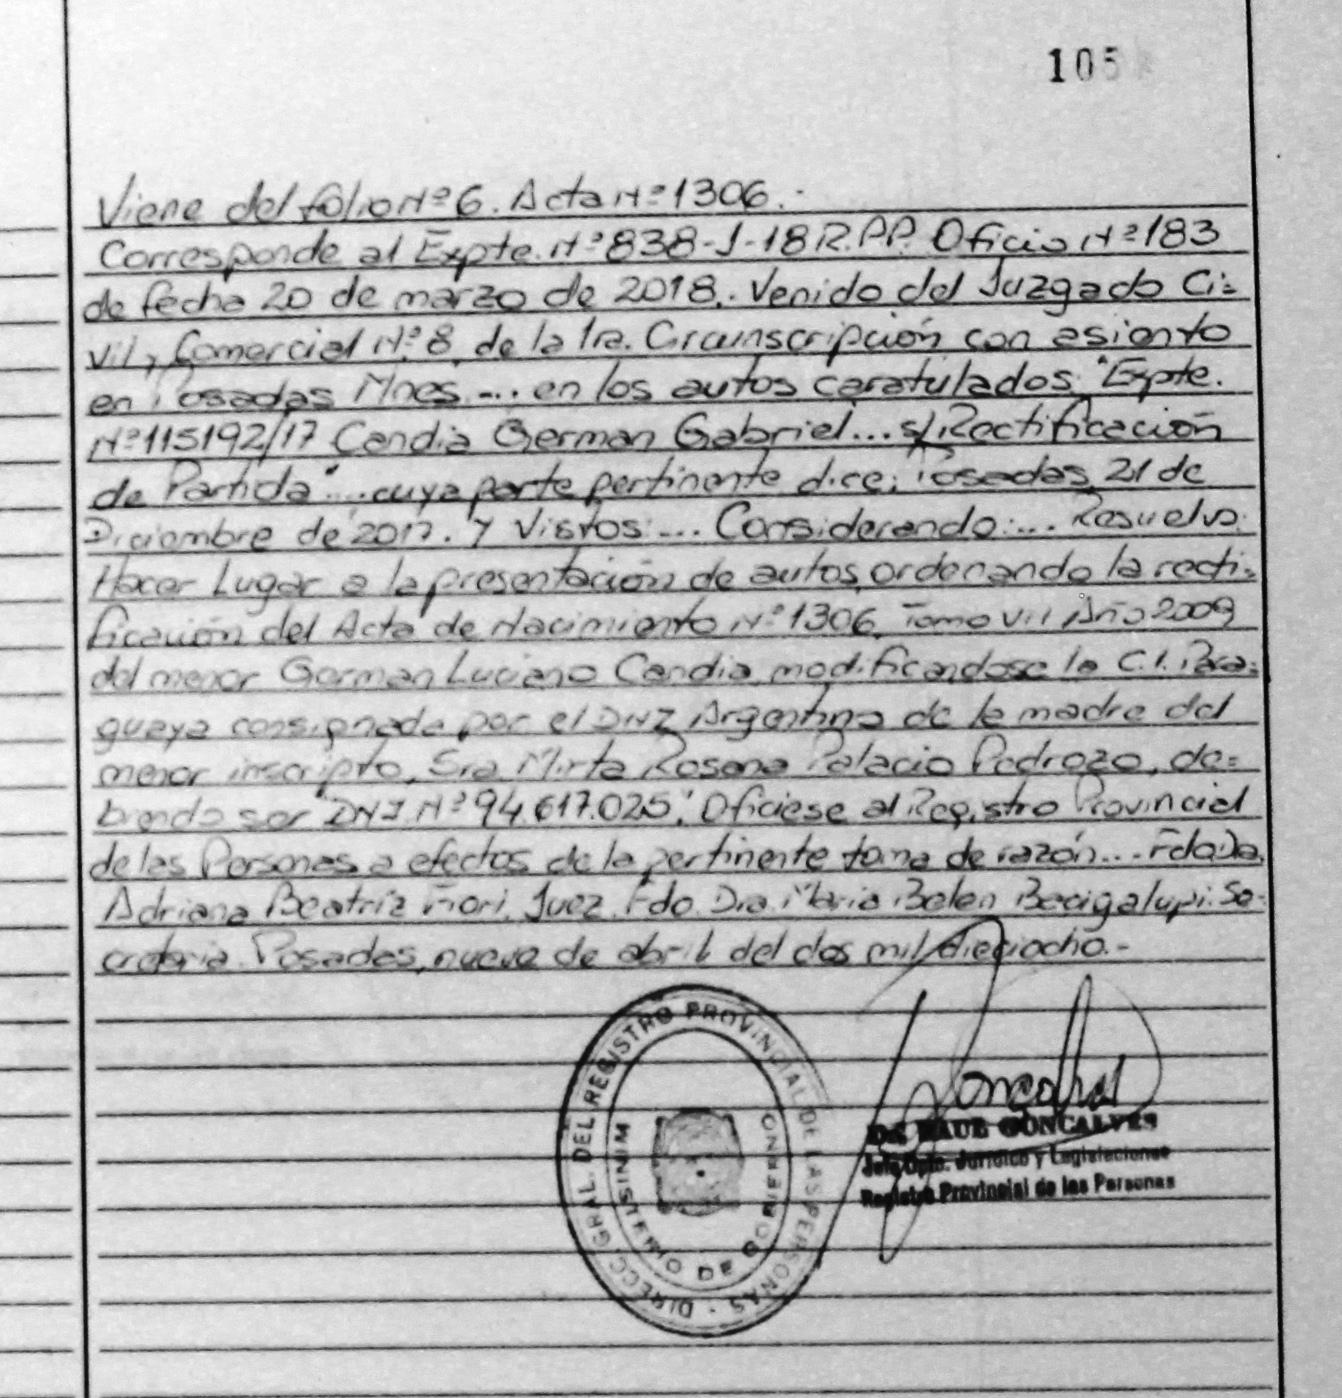 105
Viene del folio Nº 6. Acta Nº 1306.-
Corresponde al Expte. Nº 838-J-18 R.P.P. Oficio Nº 183
de fecha 20 de marzo de 2018. Venido del Juzgado Ci=
vil y Comercial Nº 8 de la 1ra. Circunscripción con asiento
en Posadas Mnes.... en los autos caratulados "Expte.
Nº 115192/17 Candia German Gabriel... s/Rectificación
de Partida"... cuya parte pertinente dice; Posadas, 21 de
Diciembre de 2017. Y Vistos:... Considerando:... Resuelvo:
Hacer Lugar a la presentación de autos, ordenando la recti=
ficación del Acta de Nacimiento Nº 1306, Tomo VII Año 2009
del menor German Luciano Candia, modificandose la C.I. Para=
guaya consignada por el DNI Argentino de la madre del
menor inscripto, Sra Mirta Rosana Palacio Pedrozo, de=
biendo ser "DNI Nº 94.617.025". Ofíciese al Registro Provincial
de las Personas a efectos de la pertinente toma de razón... Fdo Dra.
Adriana Beatríz Fiori. Juez. Fdo. Dra. Maria Belen Bacigalupi. Se-
cretaria. Posadas, nueve de abril del dos mil dieciocho.-
DIRECC. GRAL. DEL REGISTRO PROVINCIAL DE LAS PERSONAS -
MINISTERIO DE GOBIERNO
Dr. RAUL GONCALVES
Jefe Dpto. Jurídico y Legislaciones
Registro Provincial de las Personas